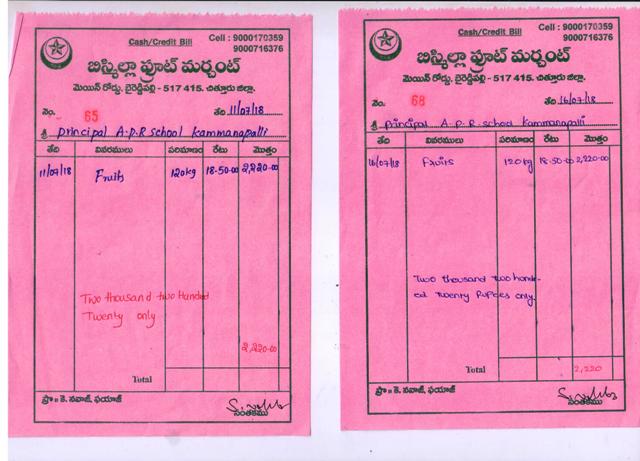 Cash/Credit Bill
Cell : 9000170359
9000716376
బిస్మిల్లా ఫ్రూట్ మర్చంట్
మెయిన్ రోడ్డు, బైరెడ్డిపల్లి - 517 415. చిత్తూరు జిల్లా.
నెం. 65 తేది 11/07/18
శ్రీ principal A-P.R school Kammanapalli
తేది వివరములు పరిమాణం రేటు మొత్తం
11/07/18 Fruits 120kg 18-50-00 2,220-00
Two thousand two Hunded
Twenty only
2,220-00
Total
ప్రొ॥ కె. నవాజ్, ఫయాజ్
సంతకము
Cash/Credit Bill
Cell : 9000170359
9000716376
బిస్మిల్లా ఫ్రూట్ మర్చంట్
మెయిన్ రోడ్డు, బైరెడ్డిపల్లి - 517 415. చిత్తూరు జిల్లా.
నెం. 68 తేది 16/07/18
శ్రీ principal A-P.R. school Kammanapalli
తేది వివరములు పరిమాణం రేటు మొత్తం
16/07/18 Fruits 120kg 18-50-00 2,220-00
Two thousand two hundr-
ed Twenty Rupees only.
Total 2,220
ప్రొ॥ కె. నవాజ్, ఫయాజ్
సంతకము